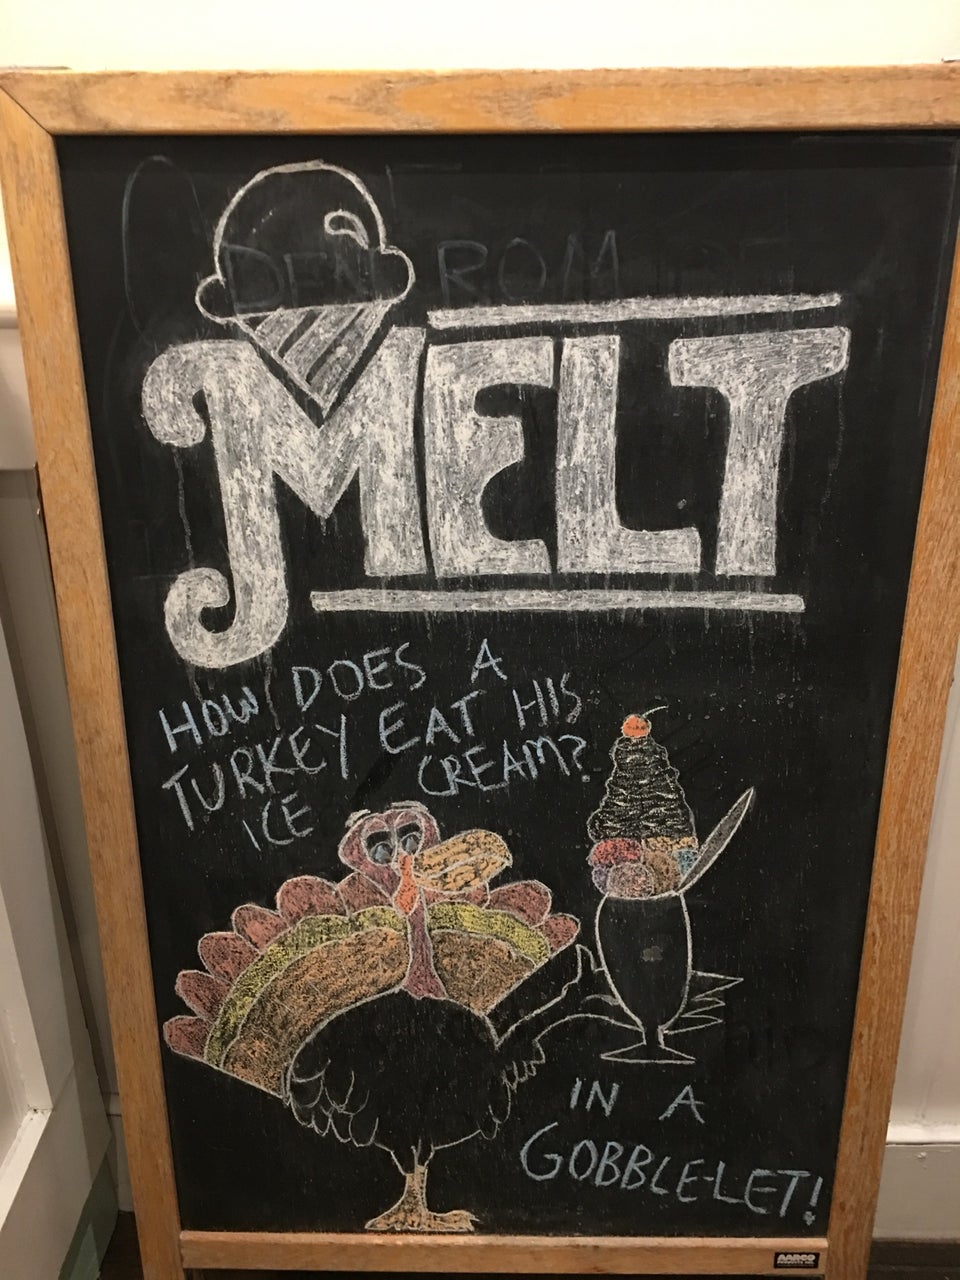 MELT
HOW DOES A
TURKEY EAT HIS
ICE CREAM?
IN A
GOBBLE-LET!
AARCO